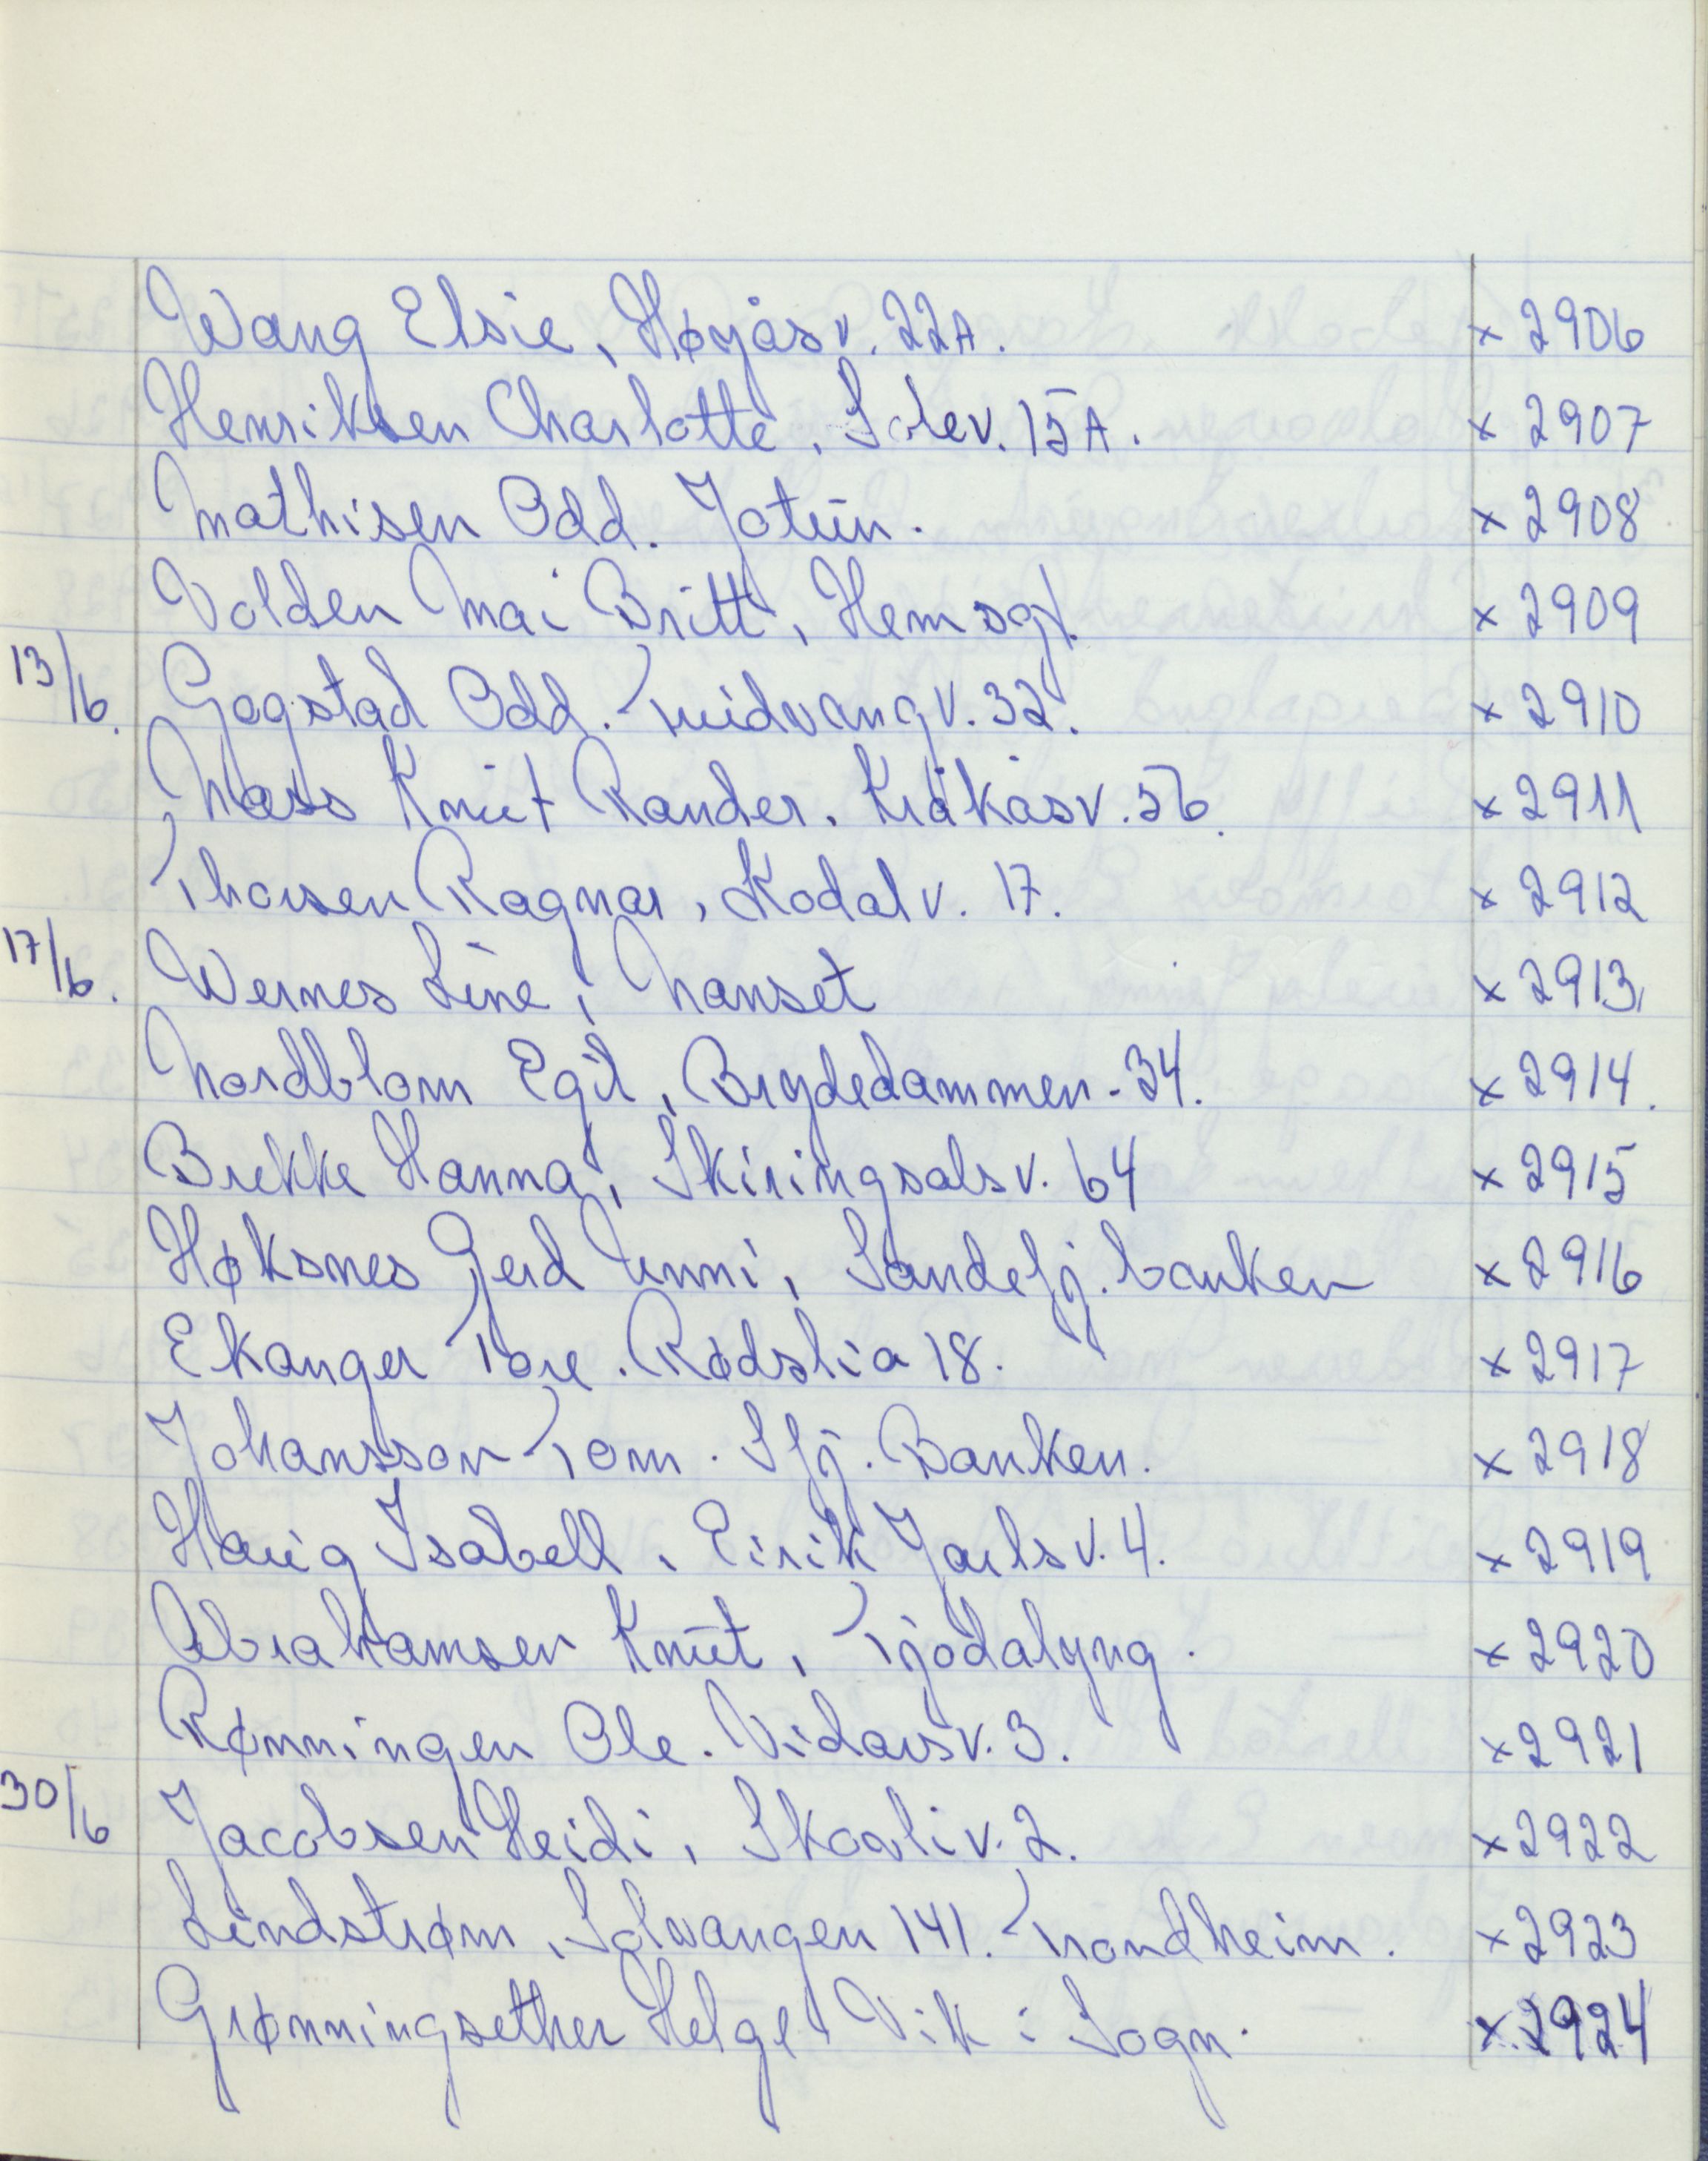 Wang Elsie, Høyåsv. 22A. x 2906
Henriksen Charlotte, Solev. 15A. x 2907
Mathisen Odd. Jotun. x 2908
Volden Mai Britt, Hemsgt. x 2909
13/6. Gogstad Odd. Tuidvangv. 32. x 2910
Næss Knut Rander. Kråkåsv. 56. x 2911
Thorsen Ragnar, Kodalv. 17. x 2912
17/6. Wernes Line, Nanset x 2913
Nordblom Egil, Brydedammen - 34. x 2914.
Brekke Hanna, Skiringsalsv. 64 x 2915
Høksnes Gerd Unni, Sandefj. banken x 2916
Ekanger Tore. Rødslia 18. x 2917
Johansson Tom. Sfj. Banken. x 2918
Haug Isabell, Eirik Jarlsv. 4. x 2919
Abrahamsen Knut, Tjodalyng. x 2920
Rønningen Ole. Vidarsv. 3. x 2921
30/6 Jacobsen Heidi, Skogliv. 2. x 2922
Lindstrøm, Solvangen 141. Trondheim. x 2923
Grønningsether Helge Vik i Sogn. x 2924